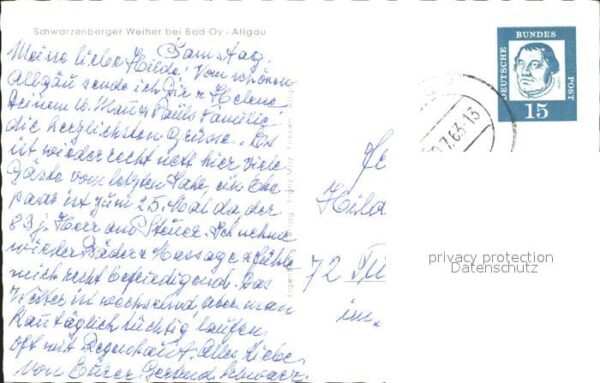 Schwarzenberger Weiher bei Bad Oy / Allgäu
Samstag,
Meine liebe Hilde. Vom schönen
Allgäu sende ich Dir u. Helene
deinem lb. Mann u. Pauls Familie
die herzlichsten Grüsse. Es
ist wieder recht nett hier, viele
Gäste vom letzten Jahr, ein Ehe
paar ist zum 25. Mal da, der
83 j. Herr am Steuer. Ich nehme
wieder Bäder u. Massage u. fühle
mich recht befriedigend. Das
Wetter ist wechselnd, aber man
kann täglich tüchtig laufen,
oft mit Regenhaut. Alles Liebe
von Eurer Gertrud Schwarz.
DEUTSCHE BUNDESPOST
15
7.63-13
Hild
72 Tü
im
privacy protection
Datenschutz